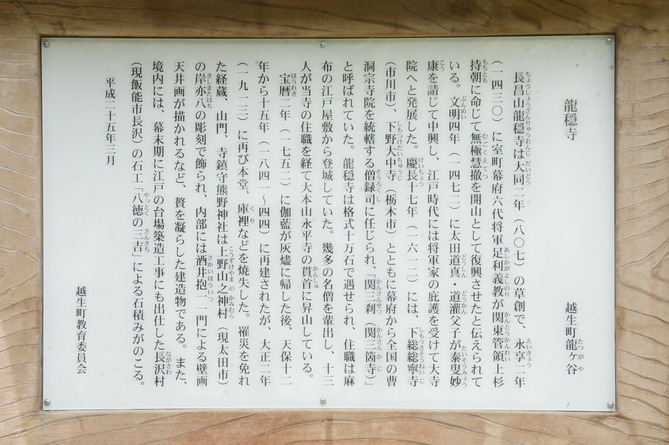 龍穏寺
越生町龍ヶ谷
長昌山龍穏寺は大同二年（八〇七）の草創で、永享二年
（一四三〇）に室町幕府六代将軍足利義教が関東管領上杉
持朝に命じて無極慧徹を開山として復興させたと伝えられて
いる。文明四年（一四七二）に太田道真・道灌父子が泰叟妙
康を請じて中興し、江戸時代には将軍家の庇護を受けて大寺
院へと発展した。慶長十七年（一六一二）には、下総総寧寺
（市川市）、下野大中寺（栃木市）とともに幕府から全国の曹
洞宗寺院を統轄する僧録司に任じられ、「関三刹（関三箇寺）」
と呼ばれていた。龍穏寺は格式十万石で遇せられ、住職は麻
布の江戸屋敷から登城していた。幾多の名僧を輩出し、十三
人が当寺の住職を経て大本山永平寺の貫首に昇山している。
宝暦二年（一七五二）に伽藍が灰燼に帰した後、天保十二
年から十五年（一八四一〜四四）に再建されたが、大正二年
（一九一三）に再び本堂、庫裡などを焼失した。罹災を免れ
た経蔵、山門、寺鎮守熊野神社は上野山之神村（現太田市）
の岸亦八の彫刻で飾られ、内部には酒井抱一一門による壁画
天井画が描かれるなど、贅を凝らした建造物である。また、
境内には、幕末期に江戸の台場築造工事にも出仕した長沢村
（現飯能市長沢）の石工「八徳の三吉」による石積みがのこる。
平成二十五年三月
越生町教育委員会